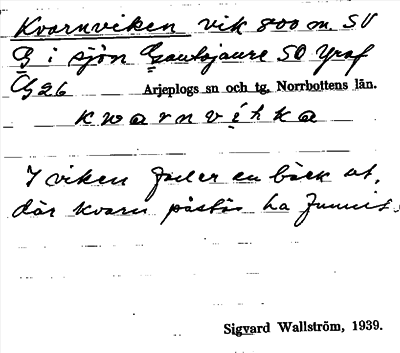 Kvarnviken vik 800 m. SV
G i sjön Gautojaure SO Yraf
Arjeplogs sn och tg, Norrbottens län.
kwarnvíka
I viken faller en bäck ut,
där kvarn påstås ha funnits.
Sigvard Wallström, 1939.